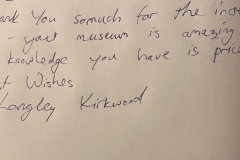 ank You somuch for the incr
- your museum is amazing
knowledge you have is price
st Wishes
Longley Kirkwood